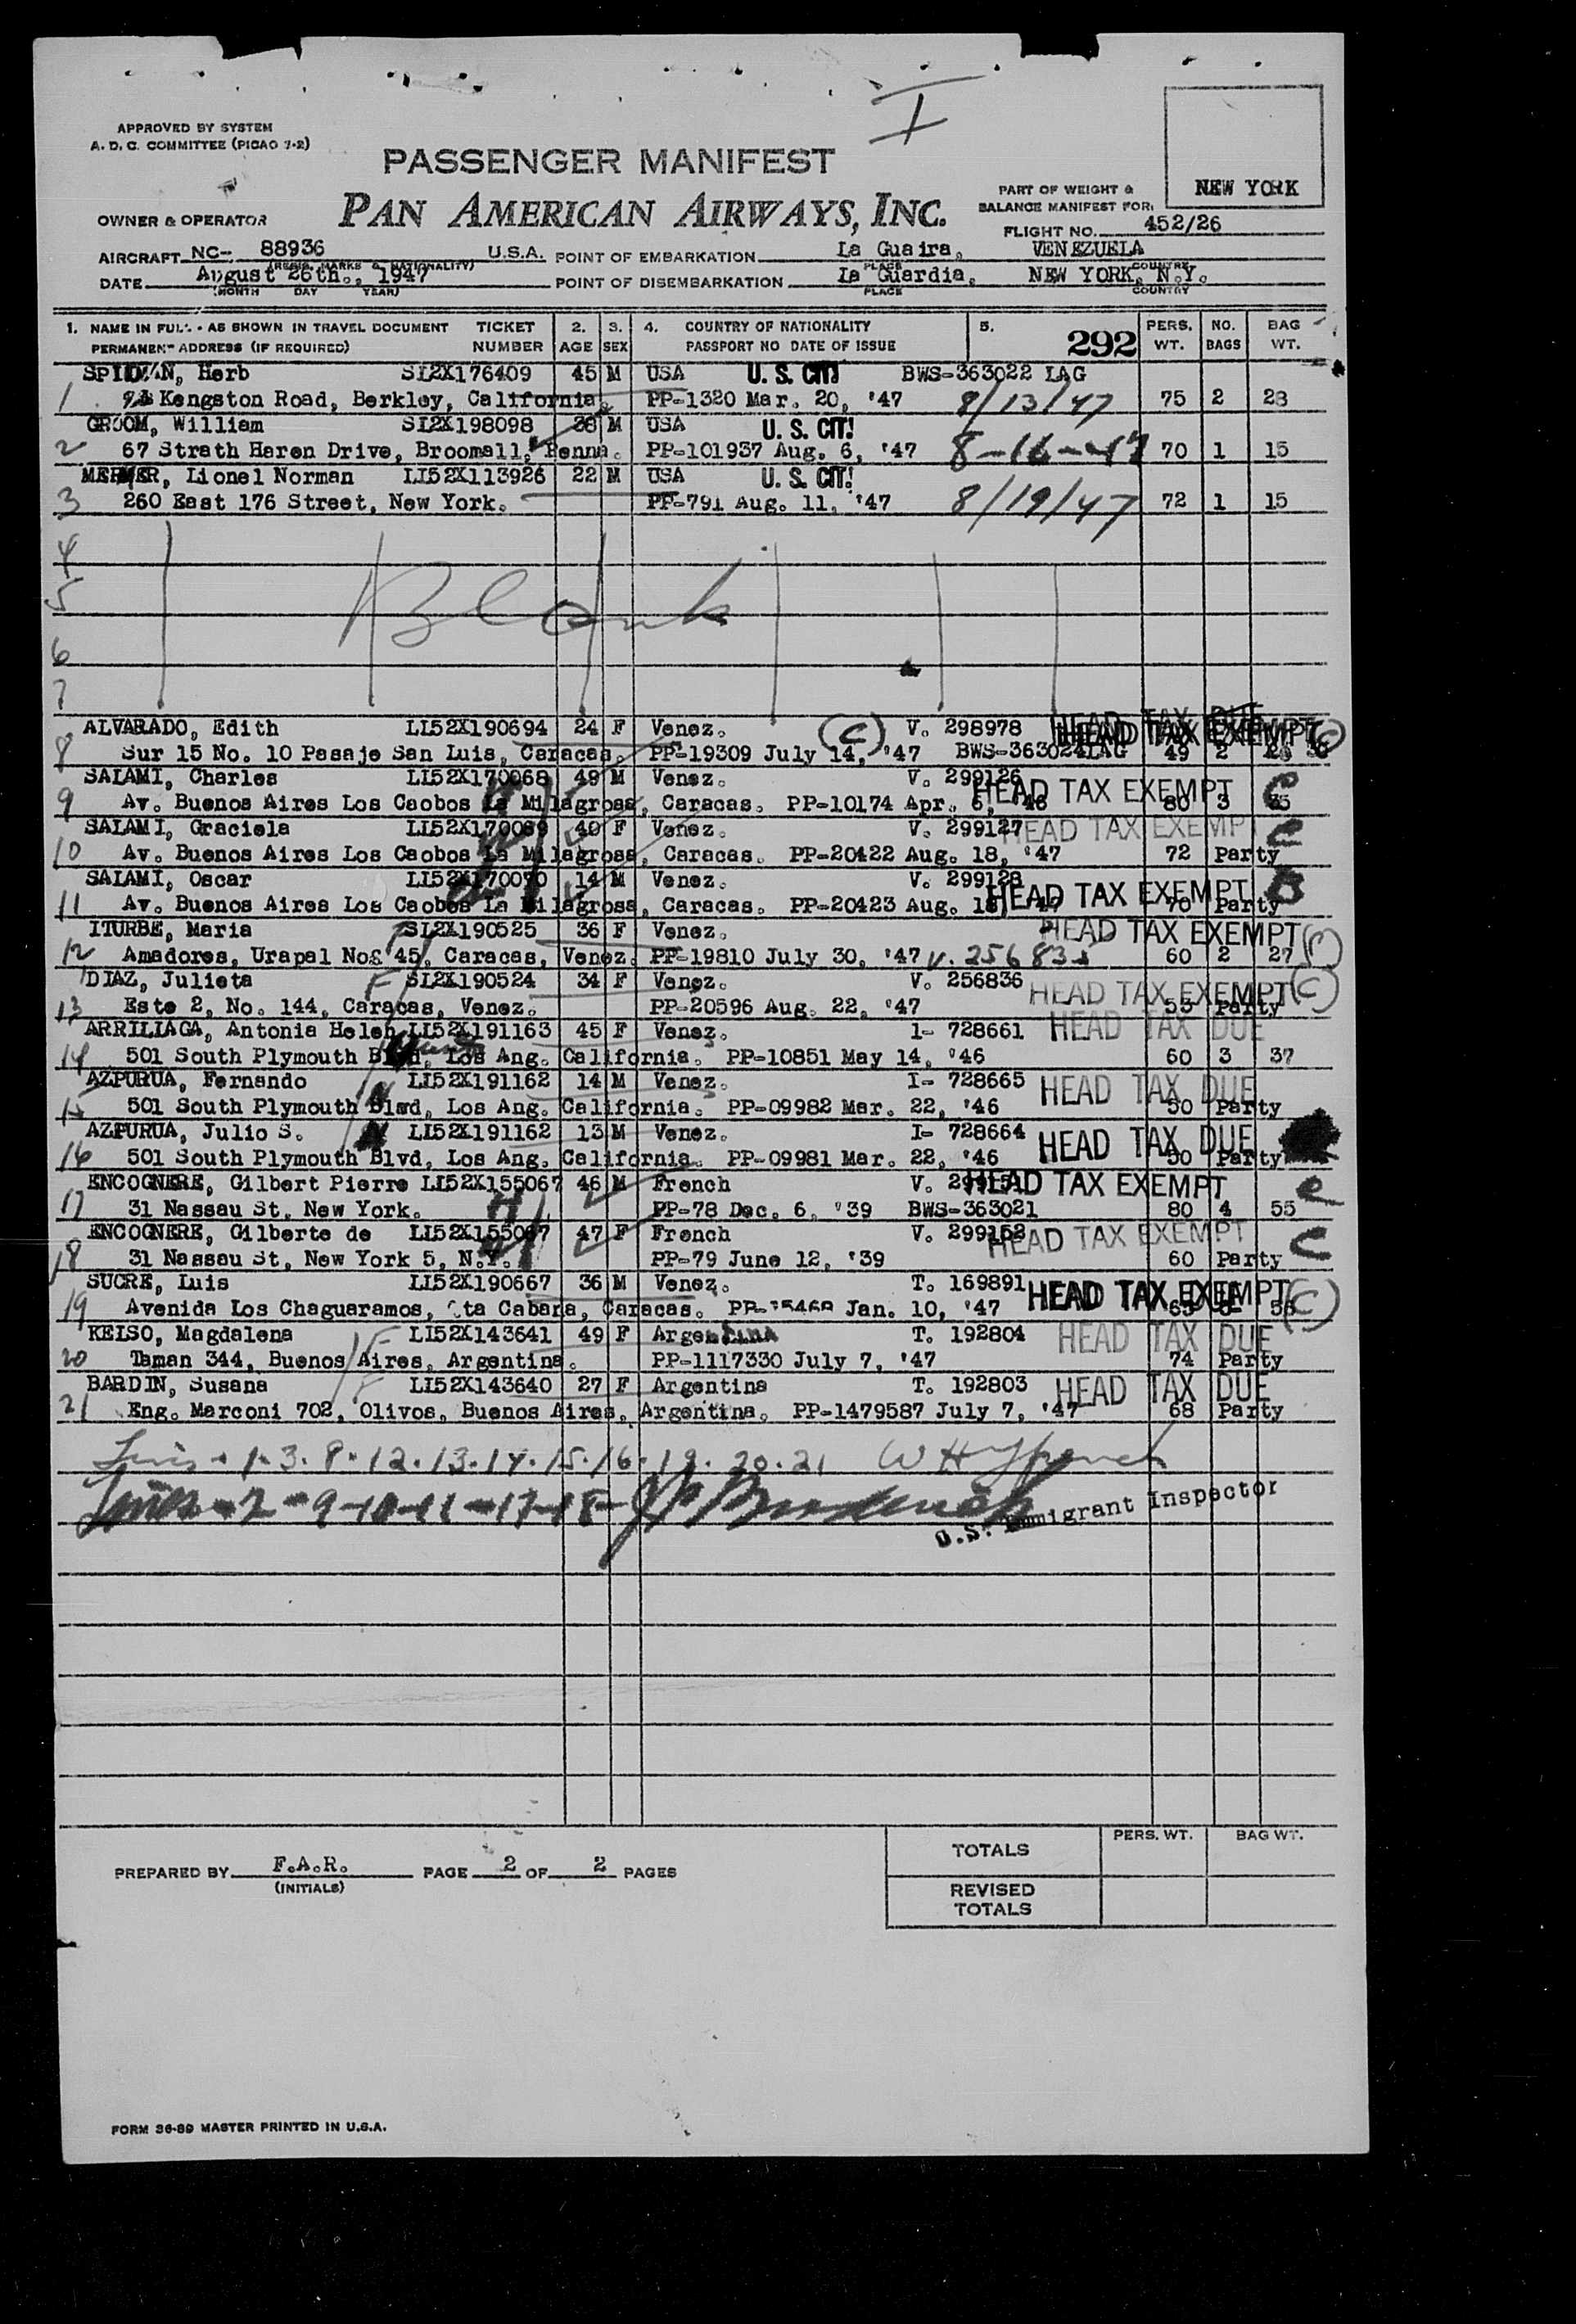 APPROVED BY SYSTEM
A. D. C. COMMITTEE (PICAO 7-2)
NEW YORK
PASSENGER MANIFEST
PAN AMERICAN AIRWAYS, INC.
OWNER & OPERATOR
PART OF WEIGHT &
BALANCE MANIFEST FOR:
FLIGHT NO. 452/26
AIRCRAFT NC- 88936 U.S.A. POINT OF EMBARKATION La Guaira, VENEZUELA
(REGIS. MARKS & NATIONALITY) PLACE COUNTRY
DATE August 26th., 1947 POINT OF DISEMBARKATION La Guardia, NEW YORK, N.Y.
(MONTH DAY YEAR) PLACE COUNTRY
1. NAME IN FULL - AS SHOWN IN TRAVEL DOCUMENT TICKET 2. 3. 4. COUNTRY OF NATIONALITY 5. 292 PERS. NO. BAG
PERMANENT ADDRESS (IF REQUIRED) NUMBER AGE SEX PASSPORT NO DATE OF ISSUE WT. BAGS WT.
Herb SI2X176409 45 M USA U. S. CIT! BWS-363022 LAG
1 Kengston Road, Berkley, California. PP-1320 Mar. 20, '47 8/13/47 75 2 28
GROOM, William SI2X198098 26 M USA U. S. CIT!
2 67 Strath Haren Drive, Broomall, Penna. PP-101937 Aug. 6, '47 8-16-47 70 1 15
Lionel Norman LI52X113926 22 M USA U. S. CIT!
3 260 East 176 Street, New York. PP-791 Aug. 11, '47 8/19/47 72 1 15
4
5 Blank
6
7
ALVARADO, Edith LI52X190694 24 F Venez. (C) V. 298978 HEAD TAX EXEMPT (C)
8 Sur 15 No. 10 Pasaje San Luis, Caracas. PP-19309 July 14, '47 BWS-363024LAG 49 2
SALAMI, Charles LI52X170068 49 M Venez. V. 299126 HEAD TAX EXEMPT C
9 Av. Buenos Aires Los Caobos La Milagrosa, Caracas. PP-10174 Apr. 6, '46 80 3
SALAMI, Graciela LI52X170069 40 F Venez. V. 299127 HEAD TAX EXEMPT C
10 Av. Buenos Aires Los Caobos La Milagrosa, Caracas. PP-20422 Aug. 18, '47 72 Party
SALAMI, Oscar LI52X170070 14 M Venez. V. 299128 HEAD TAX EXEMPT B
11 Av. Buenos Aires Los Caobos La Milagrosa, Caracas. PP-20423 Aug. 18, '47 70 Party
ITURBE, Maria SI2X190525 36 F Venez. HEAD TAX EXEMPT
12 Amadores, Urapal No& 45, Caracas, Venez. PP-19810 July 30, '47 V. 256835 60 2 27
DIAZ, Julieta F SI2X190524 34 F Venez. V. 256836 HEAD TAX EXEMPT (C)
13 Este 2, No. 144, Caracas, Venez. PP-20596 Aug. 22, '47 53 Party
ARRILIAGA, Antonia Helen LI52X191163 45 F Venez. I- 728661 HEAD TAX DUE
14 501 South Plymouth Blvd, Los Ang. California. PP-10851 May 14, '46 60 3 37
AZPURUA, Fernando LI52X191162 14 M Venez. I- 728665 HEAD TAX DUE
15 501 South Plymouth Blvd, Los Ang. California. PP-09982 Mar. 22, '46 50 Party
AZPURUA, Julio S. LI52X191162 13 M Venez. I- 728664 HEAD TAX DUE
16 501 South Plymouth Blvd, Los Ang. California. PP-09981 Mar. 22, '46 50 Party
ENCOGNERE, Gilbert Pierre LI52X155067 46 M French V. HEAD TAX EXEMPT C
17 31 Nassau St, New York. PP-78 Dec. 6, '39 BWS-363021 80 4 55
ENCOGNERE, Gilberte de LI52X155067 47 F French V. 299152 HEAD TAX EXEMPT C
18 31 Nassau St, New York 5, N.Y. PP-79 June 12, '39 60 Party
SUCRE, Luis LI52X190667 36 M Venez. T. 169891 HEAD TAX EXEMPT (C)
19 Avenida Los Chaguaramos, Cabana, Caracas. Jan. 10, '47
KELSO, Magdalena F LI52X143641 49 F Argentina T. 192804 HEAD TAX DUE
20 Taman 344, Buenos Aires, Argentina. PP-1117330 July 7, '47 74 Party
BARDIN, Susana F LI52X143640 27 F Argentina T. 192803 HEAD TAX DUE
21 Eng. Marconi 702, Olivos, Buenos Aires, Argentina. PP-1479587 July 7, '47 68 Party
1.3.8.12.13.14.15.16.19.20.21
Lines-2-9-10-11-17-18-
U.S. Immigrant Inspector
PREPARED BY F.A.R. PAGE 2 OF 2 PAGES
(INITIALS)
TOTALS PERS. WT. BAG WT.
REVISED
TOTALS
FORM 36-89 MASTER PRINTED IN U.S.A.